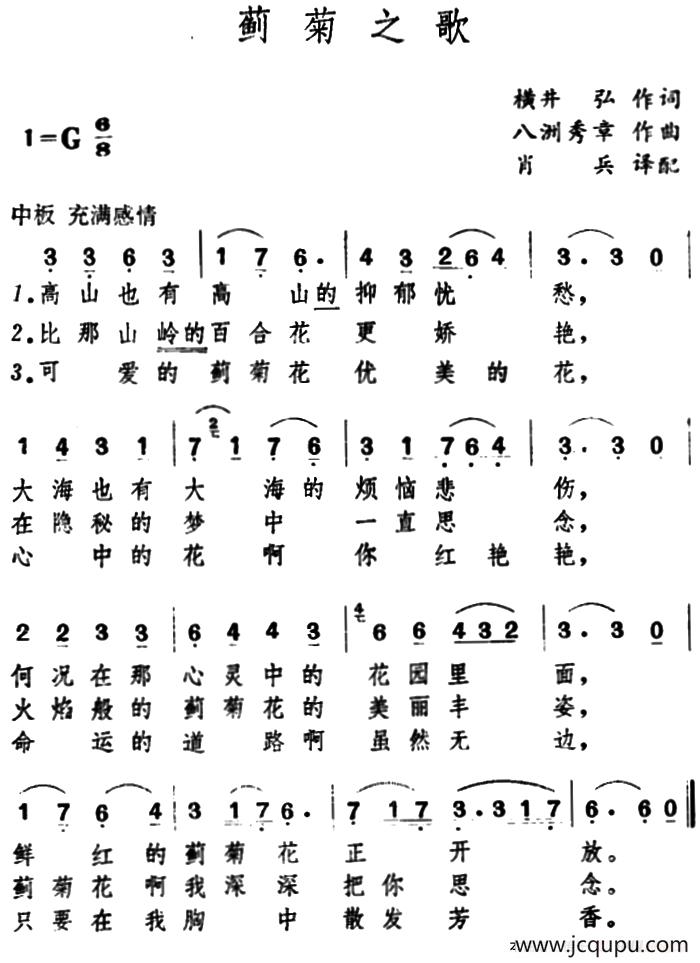 蓟菊之歌
横井 弘 作词
1=G 6/8
八洲秀章 作曲
肖 兵 译配
中板 充满感情
3 3 6 3 | 1 7 6. | 4 3 2 6 4 | 3. 3 0 |
1.高山也有高山的抑郁忧愁,
2.比那山岭的百合花更娇艳,
3.可爱的蓟菊花优美的花,
1 4 3 1 | 7 2 1 7 6 | 3 1 7 6 4 | 3. 3 0 |
大海也有大海的烦恼悲伤,
在隐秘的梦中一直思念,
心中的花啊你红艳艳,
2 2 3 3 | 6 4 4 3 | 4 6 6 4 3 2 | 3. 3 0 |
何况在那心灵中的花园里面,
火焰般的蓟菊花的美丽丰姿,
命运的道路啊虽然无边,
1 7 6 4 | 3 1 7 6. | 7 1 7 3. 3 1 7 | 6. 6 0 ‖
鲜红的蓟菊花正开放。
蓟菊花啊我深深把你思念。
只要在我胸中散发芳香。
www.jcqupu.com